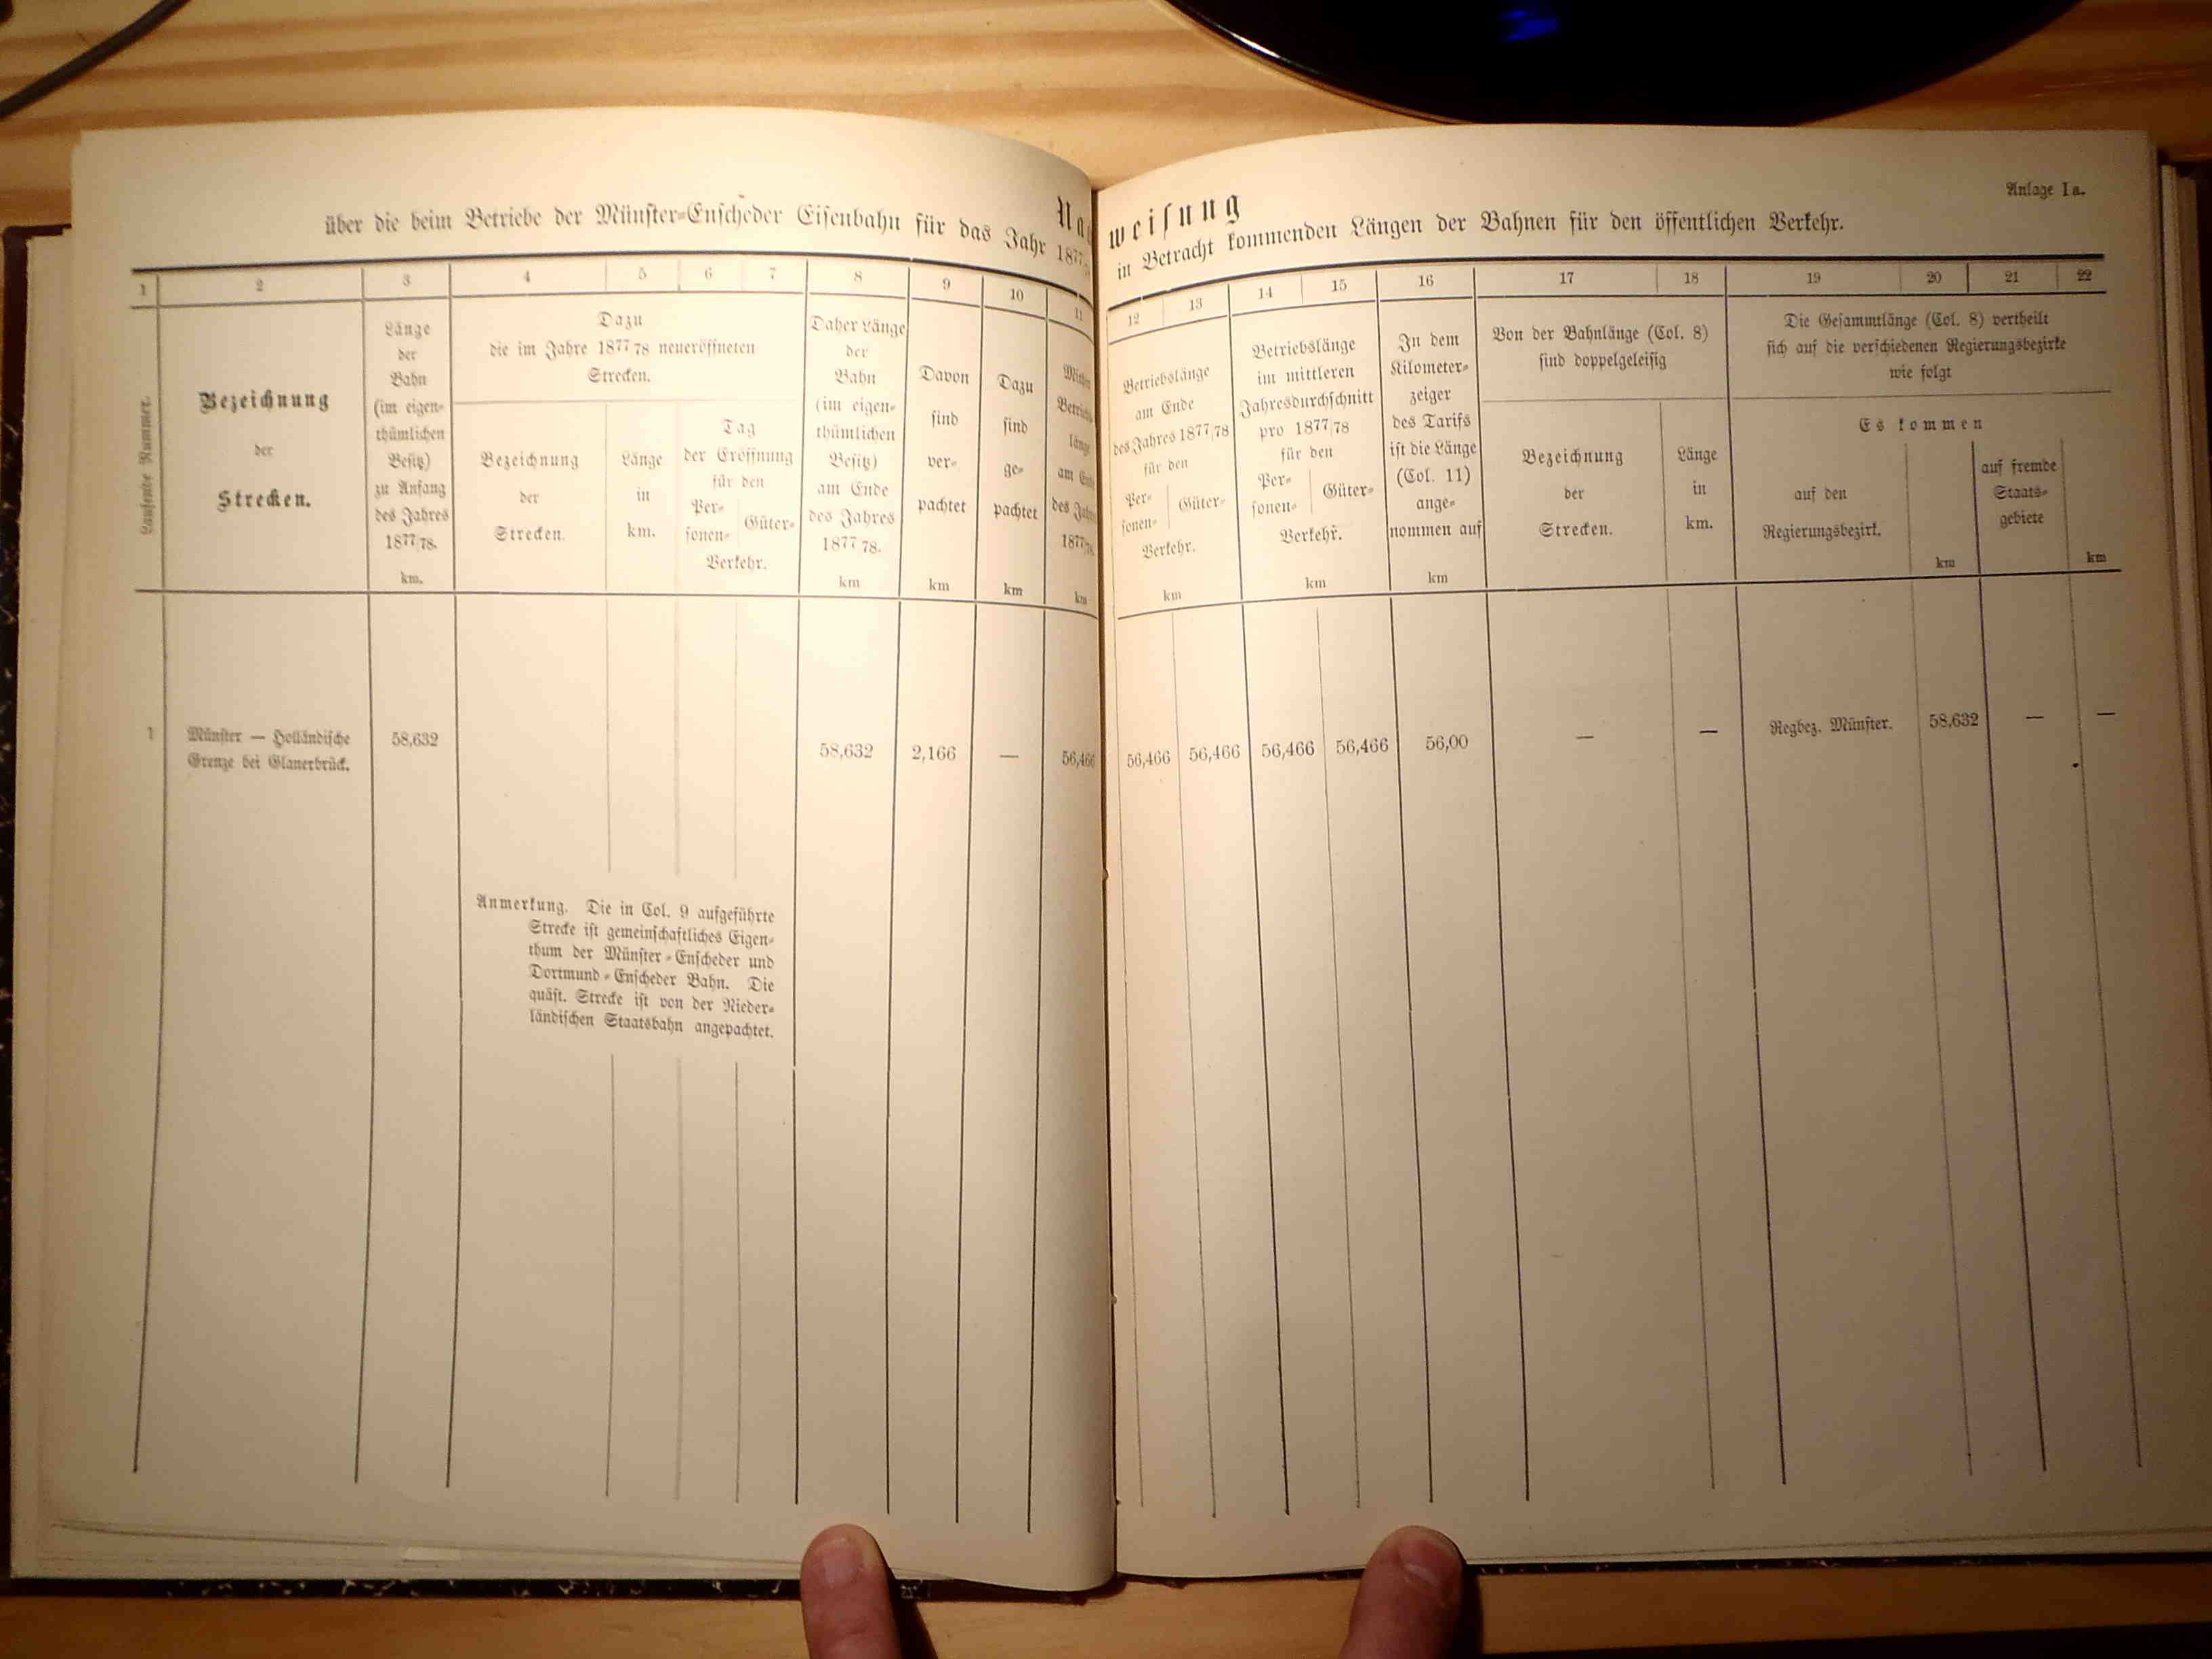 Anlage Ia.
weisung
über die beim Betriebe der Münster-Enscheder Eisenbahn für das Jahr 1877/78 in Betracht kommenden Längen der Bahnen für den öffentlichen Verkehr.
1 2 3 4 5 6 7 8 9 10 11 12 13 14 15 16 17 18 19 20 21 22
Laufende Nummer.
Bezeichnung
der
Strecken.
Länge
der
Bahn
(im eigen-
thümlichen
Besitz)
zu Anfang
des Jahres
1877/78.
km.
Dazu
die im Jahre 1877/78 neueröffneten
Strecken.
Bezeichnung
der
Strecken.
Länge
in
km.
Tag
der Eröffnung
für den
Per-
sonen-
Güter-
Verkehr.
Daher Länge
der
Bahn
(im eigen-
thümlichen
Besitz)
am Ende
des Jahres
1877/78.
km
Davon
sind
ver-
pachtet
km
Dazu
sind
ge-
pachtet
km
Mithin
Betriebs-
länge
am Ende
des Jahres
1877/78.
km
Betriebslänge
am Ende
des Jahres 1877/78
für den
Per-
sonen-
Güter-
Verkehr.
km
Betriebslänge
im mittleren
Jahresdurchschnitt
pro 1877/78
für den
Per-
sonen-
Güter-
Verkehr.
km
In dem
Kilometer-
zeiger
des Tarifs
ist die Länge
(Col. 11)
ange-
nommen auf
km
Von der Bahnlänge (Col. 8)
sind doppelgeleisig
Bezeichnung
der
Strecken.
Länge
in
km.
Die Gesammtlänge (Col. 8) vertheilt
sich auf die verschiedenen Regierungsbezirke
wie folgt
Es kommen
auf den
Regierungsbezirk.
km
auf fremde
Staats-
gebiete
km
1 Münster — Holländische 58,632 58,632 2,166 — 56,466 56,466 56,466 56,466 56,466 56,00 — — Regbez. Münster. 58,632 — —
Grenze bei Glanerbrück.
Anmerkung. Die in Col. 9 aufgeführte
Strecke ist gemeinschaftliches Eigen-
thum der Münster-Enscheder und
Dortmund-Enscheder Bahn. Die
quäst. Strecke ist von der Nieder-
ländischen Staatsbahn angepachtet.